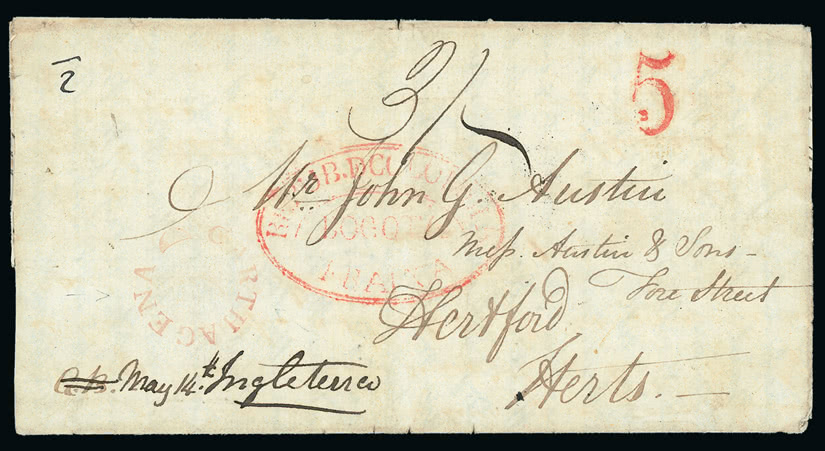 1/2
3/
5
REPUB. D COLOMBIA
BOGOTA
FRANCA
Mr. John G. Austin
Mess. Austin & Sons -
Fore Street
Hertford
Herts. —
CARTHAGENA
May 14th. Ingleterra